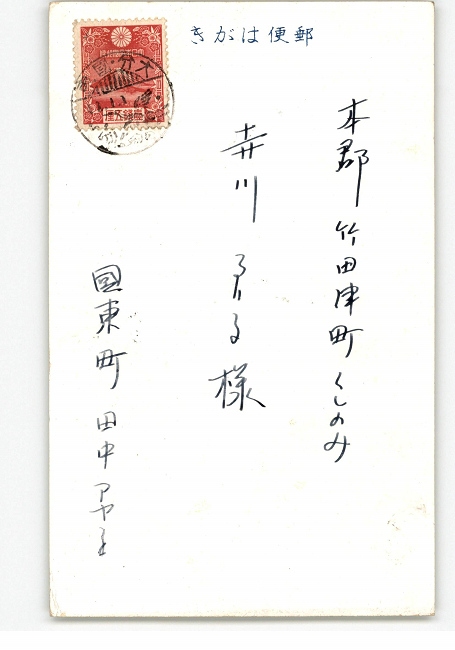 きがは便郵
本郡竹田津町くしのみ
井川 る様
國東町 田中アヤ